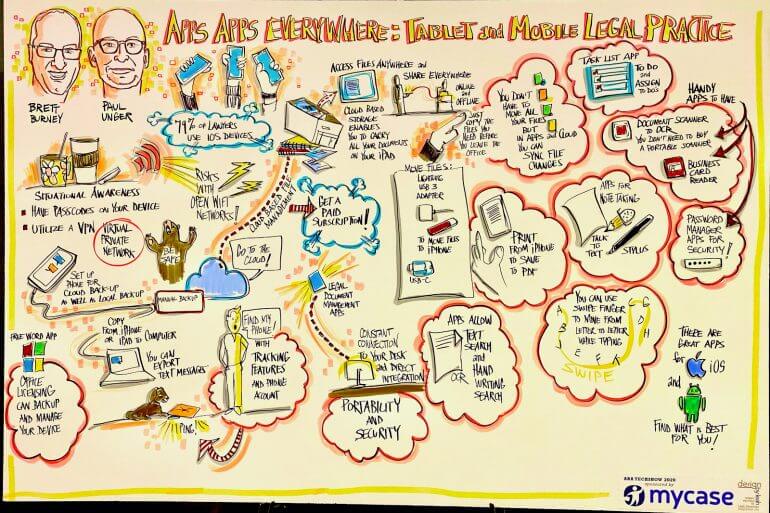 APPS APPS EVERYWHERE: TABLET and MOBILE LEGAL PRACTICE
BRETT
BURNEY
PAUL
UNGER
79% OF LAWYERS
USE IOS DEVICES
ACCESS FILES ANYWHERE and
SHARE EVERYWHERE
ONLINE
and
OFFLINE
CLOUD BASED
STORAGE
ENABLES
YOU TO CARRY
ALL YOUR DOCUMENTS
ON YOUR iPAD
JUST
COPY THE
FILES YOU
NEED BEFORE
YOU LEAVE THE
OFFICE
YOU DON'T
HAVE TO
MOVE ALL
YOUR FILES
BUT
APPS and CLOUD
YOU CAN
SYNC FILE
CHANGES
TASK LIST APP
TO DO
and
ASSIGN
TO DOS
HANDY
APPS TO HAVE
DOCUMENT SCANNER
TO OCR
YOU DON'T NEED TO BUY
A PORTABLE SCANNER
BUSINESS
CARD
READER
PASSWORD
MANAGER
APPS FOR
SECURITY!
SITUATIONAL AWARENESS
HAVE PASSCODES ON YOUR DEVICE
UTILIZE A VPN
VIRTUAL
PRIVATE
NETWORK
RISKS
WITH
OPEN WIFI
NETWORKS!
BE
SAFE
CLOUD BASED FILE
MANAGEMENT
GET A
PAID
SUBSCRIPTION!
GO TO THE
CLOUD!
MOVE FILES:
LIGHTNING
USB 3
ADAPTER
TO MOVE FILES
TO iPHONE
USB-C
PRINT
FROM iPHONE
TO SAVE
TO PDF
APPS FOR
NOTE TAKING
TALK
TO
TEXT
STYLUS
SET UP
PHONE FOR
CLOUD BACKUP
AS WELL AS LOCAL BACKUP
MANUAL BACKUP
LEGAL
DOCUMENT
MANAGEMENT
APPS
COPY
FROM iPHONE
OR iPAD TO COMPUTER
YOU CAN
EXPORT
TEXT MESSAGES
FREE WORD APP
OFFICE
LICENSING
CAN BACKUP
AND MANAGE
YOUR DEVICE
PING!
FIND MY
PHONE!
WITH
TRACKING
FEATURES
AND PHONE
ACCOUNT
CONSTANT
CONNECTION
TO YOUR DESK
and DIRECT
INTEGRATION
PORTABILITY
AND
SECURITY
APPS ALLOW
TEXT
SEARCH
and
HAND
WRITING
SEARCH
OCR
YOU CAN USE
SWIPE FINGER
TO MOVE FROM
LETTER TO LETTER
WHILE TYPING
SWIPE
THERE ARE
GREAT APPS
for
iOS
and
FIND WHAT IS BEST
FOR YOU!
ABA TECHSHOW 2020
sponsored by
mycase
design